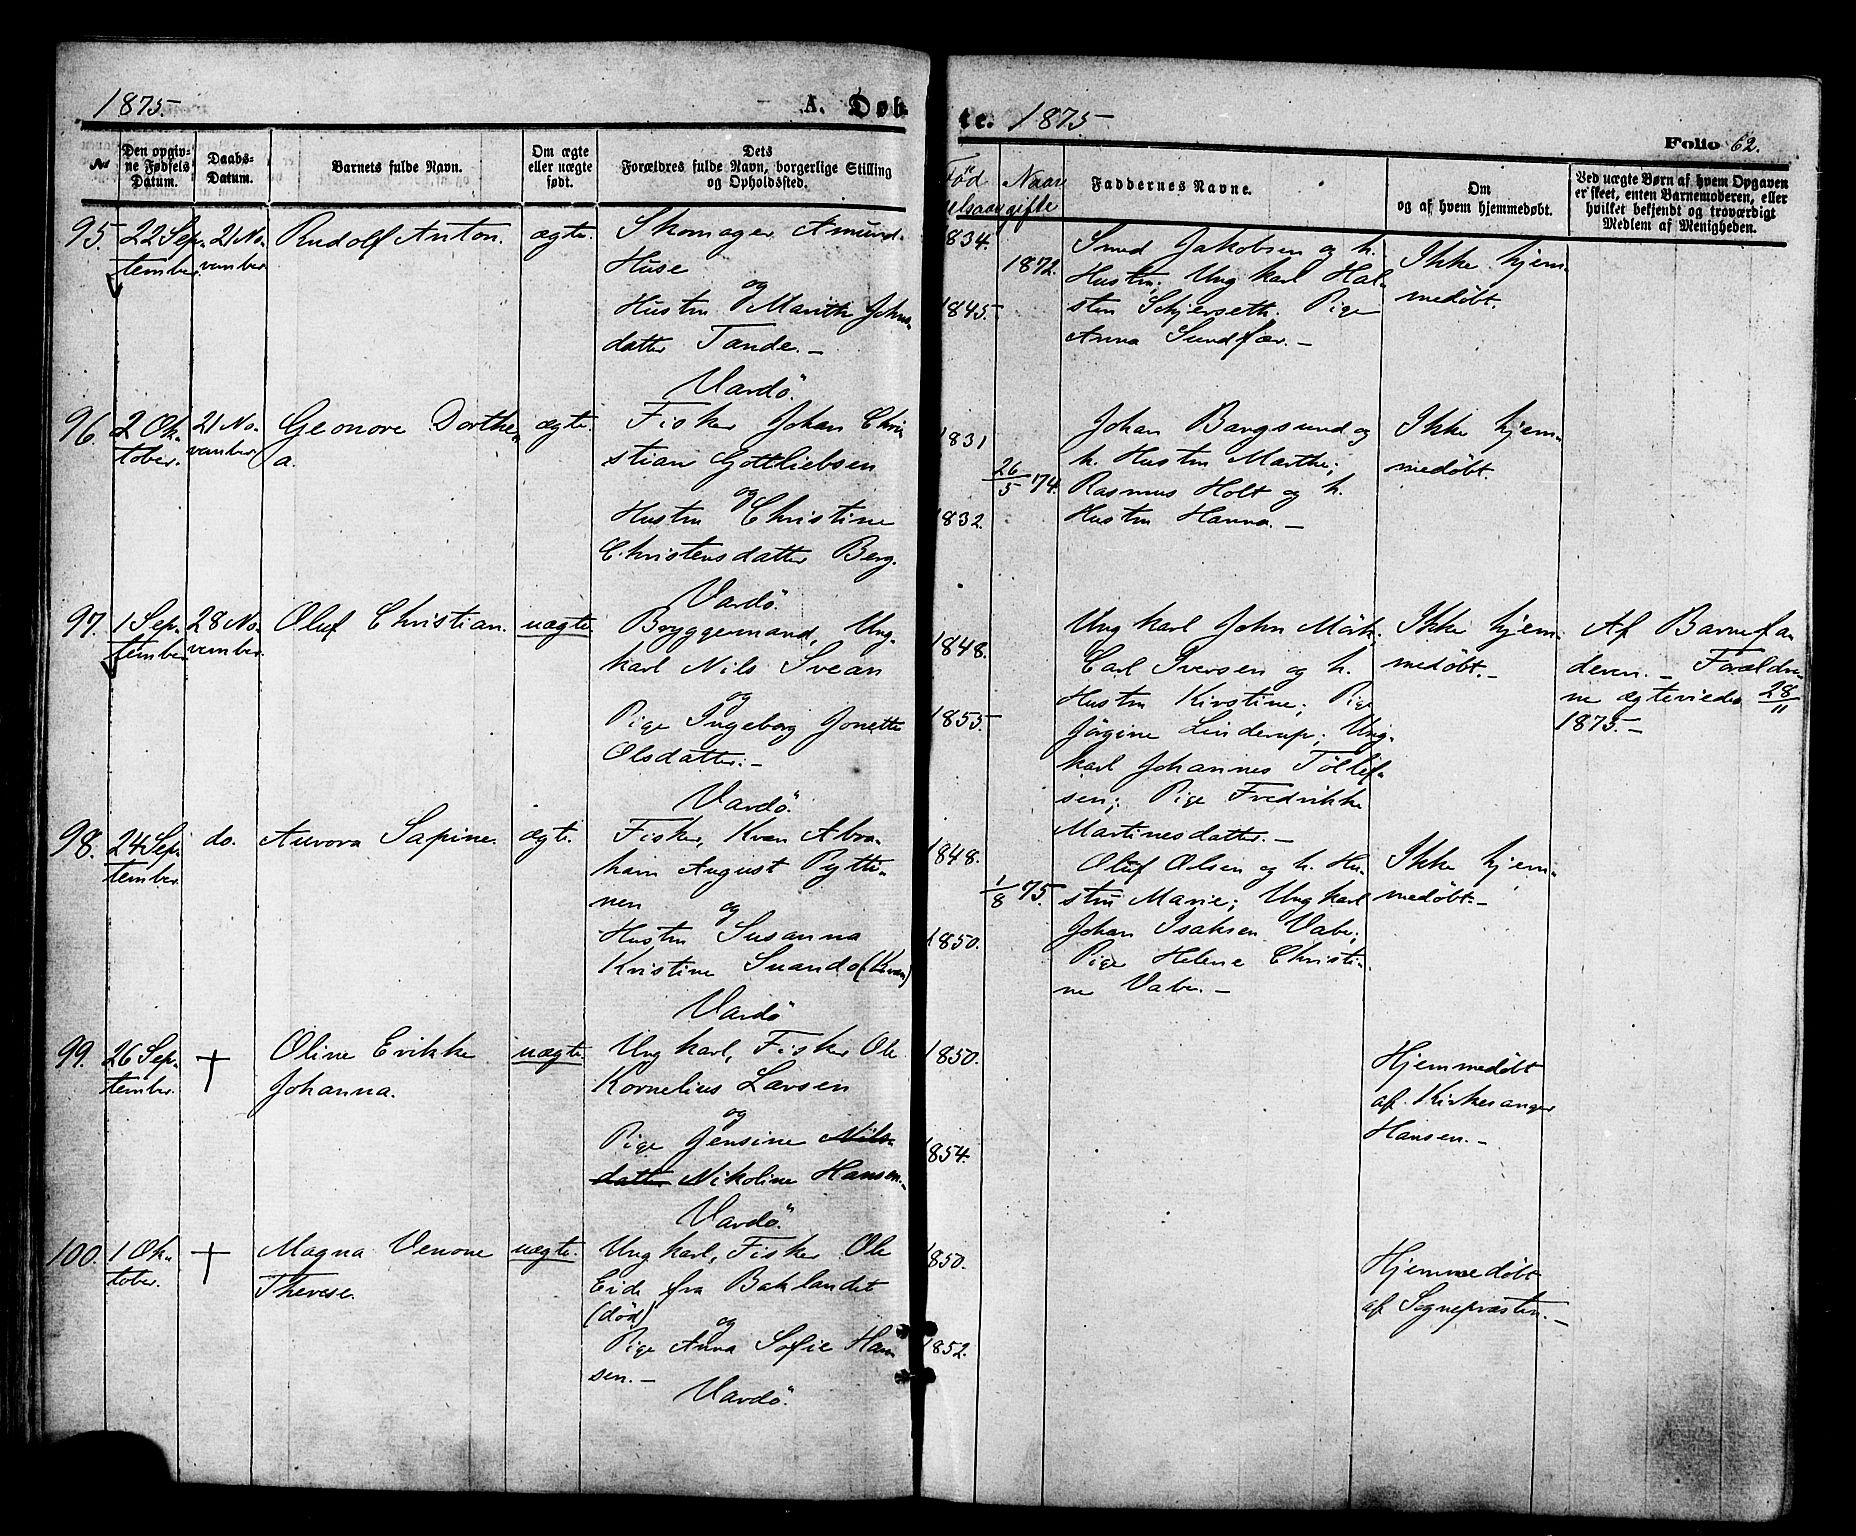 1875.
A. Døb-
te. 1875
Folio 62.
Nr
Den opgiv-
ne Fødsels
Datum.
Daabs-
Datum.
Barnets fulde Navn.
Om ægte
eller uægte
født.
Dets
Forældres fulde Navn, borgerlige Stilling
og Opholdsted.
Fød
elsaar
Naar
gifte
Faddernes Navne.
Om
og af hvem hjemmedøbt.
Ved uægte Børn af hvem Opgaven
er skeet, enten Barnemoderen, eller
hvilket bekjendt og troværdigt
Medlem af Menigheden.
95.
22 Sep-
tember.
21 No-
vember
Rudolf Anton.
ægte.
Skomager Amund
Huse
og
Hustru Marith Johns
datter Tande.-
Vardö.
1834.
1845.
1872.
Smed Jakobsen og h.
Hustru; Ungkarl Hal-
sten Schjerseth. Pige
Anna Sundfær.-
Ikke hjem-
medøbt.
96.
2 Ok-
tober.
21 No-
vember
Geonore Dorthe-
a.
ægte.
Fisker Johan Chri
stian Gottliebsen
og
Hustru Christine
Christensdatter Berg.
Vardö.
1831
1832.
26/5 74.
Johan Bangsund og
h. Hustru Marthe;
Rasmus Holt og h.
Hustru Hanna.-
Ikke hjem-
medøbt.
97.
1 Sep-
tember
28 No-
vember.
Oluf Christian.
uægte.
Bryggemand, Ung-
karl Nils Svean
og
Pige Ingeborg Jonette
Olsdatter.-
Vardö.
1848.
1855.
Ungkarl John Mörk;
Carl Iversen og h.
Hustru Kirstine; Pige
Jörgine Linderup; Ung-
karl Johannes Tollef-
sen; Pige Fredrikke
Martinesdatter.-
Ikke hjem-
medøbt.-
Af Barnefa
deren.- Forældre
ne ægteviedes 28/11
1875.-
98.
24 Sep-
tember.
do.
Aurora Sapine.
ægte.
Fisker, Kvæn Abra-
ham August Pytti-
nen
og
Hustru Susanna
Kristine Suando (Kvæn)
Vardö
1848.
1850.
1/8 75.
Oluf Olsen og h. Hu-
stru Marie; Ungkarl
Johan Isaksen Vabe;
Pige Helene Christi-
ne Vabe.-
Ikke hjem-
medøbt.-
99.
26 Sep-
tember.
†
Oline Erikke
Johanna.
uægte.
Ungkarl, Fisker Ole
Kornelius Larsen
og
Pige Jensine Nils-
datter Nikoline Hansen.-
Vardö.
1850.
1854.
Hjemmedøbt
af Kirkesanger
Hansen.-
100.
1 Ok-
tober.
†
Magna Venone
Therese.
uægte.
Ungkarl, Fisker Ole
Eide fra Baklandet
(död)
og
Pige Anna Sofie Han
sen.-
Vardö.
1850.
1852.
Hjemmedøbt
af Sognepræsten.-